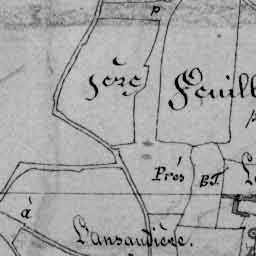 P
Feuill
Prés
B.T.
à
Lansaudière.